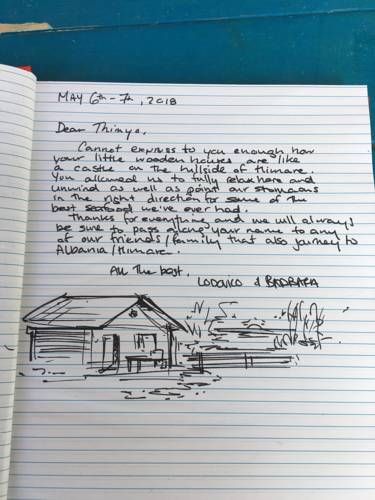 MAY 6th - 7th, 2018
Dear Thimyo,
Cannot express to you enough how
your little wooden houses are like
a castle on the hillside of Himare.
You allowed us to fully relax here and
unwind as well as point our stomachs
in the right direction for some of the
best seafood we've ever had.
Thanks for everything and we will always
be sure to pass along your name to any
of our friends/family that also journey to
Albania/Himare.
All the best,
& BARBARA